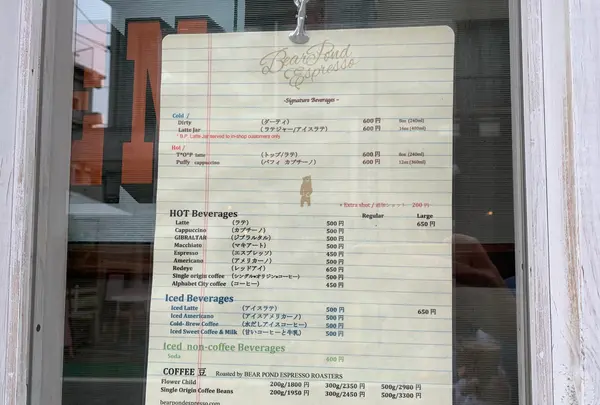 Bear Pond
Espresso
~Signature Beverages~
Cold /
Dirty (ダーティ) 600 円 8oz (240ml)
Latte Jar (ラテジャー/アイスラテ) 600 円 16oz (480ml)
* N.P. Latte Jar served to in-shop customers only
Hot /
T*O*P latte (トップ/ラテ) 600 円 8oz (240ml)
Puffy cappuccino (パフィ カプチーノ) 600 円 12oz (360ml)
* Extra shot / 追加ショット 200 円
HOT Beverages Regular Large
Latte (ラテ) 500 円 650 円
Cappuccino (カプチーノ) 500 円
GIBRALTAR (ジブラルタル) 500 円
Macchiato (マキアート) 500 円
Espresso (エスプレッソ) 450 円
Americano (アメリカーノ) 500 円
Redeye (レッドアイ) 650 円
Single origin coffee (シングル•オリジン•コーヒー) 500 円
Alphabet City coffee (コーヒー) 450 円
Iced Beverages
Iced Latte (アイスラテ) 500 円 650 円
Iced Americano (アイスアメリカーノ) 500 円
Cold- Brew Coffee (水だしアイスコーヒー) 500 円
Iced Sweet Coffee & Milk (甘いコーヒーと牛乳) 500 円
Iced non-coffee Beverages
Soda 400 円
COFFEE 豆 Roasted by BEAR POND ESPRESSO ROASTERS
Flower Child 200g/1800 円 300g/2350 円 500g/2980 円
Single Origin Coffee Beans 200g/1950 円 300g/2450 円 500g/3300 円
bearpondespresso.com